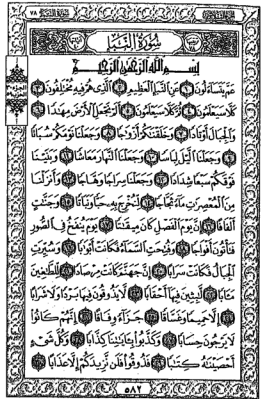 ٧٨ سُورَةُ النَّبَإِ
سُورَةُ النَّبَإِ
بِسْمِ اللَّهِ الرَّحْمَٰنِ الرَّحِيمِ
عَمَّ يَتَسَآءَلُونَ ١ عَنِ ٱلنَّبَإِ ٱلْعَظِيمِ ٢ ٱلَّذِى هُمْ فِيهِ مُخْتَلِفُونَ ٣
كَلَّا سَيَعْلَمُونَ ٤ ثُمَّ كَلَّا سَيَعْلَمُونَ ٥ أَلَمْ نَجْعَلِ ٱلْأَرْضَ مِهَٰدًا ٦
وَٱلْجِبَالَ أَوْتَادًا ٧ وَخَلَقْنَٰكُمْ أَزْوَٰجًا ٨ وَجَعَلْنَا نَوْمَكُمْ سُبَاتًا
٩ وَجَعَلْنَا ٱلَّيْلَ لِبَاسًا ١٠ وَجَعَلْنَا ٱلنَّهَارَ مَعَاشًا ١١ وَبَنَيْنَا
فَوْقَكُمْ سَبْعًا شِدَادًا ١٢ وَجَعَلْنَا سِرَاجًا وَهَّاجًا ١٣ وَأَنزَلْنَا
مِنَ ٱلْمُعْصِرَٰتِ مَآءً ثَجَّاجًا ١٤ لِّنُخْرِجَ بِهِۦ حَبًّا وَنَبَاتًا ١٥ وَجَنَّٰتٍ
أَلْفَافًا ١٦ إِنَّ يَوْمَ ٱلْفَصْلِ كَانَ مِيقَٰتًا ١٧ يَوْمَ يُنفَخُ فِى ٱلصُّورِ
فَتَأْتُونَ أَفْوَاجًا ١٨ وَفُتِحَتِ ٱلسَّمَآءُ فَكَانَتْ أَبْوَٰبًا ١٩ وَسُيِّرَتِ
ٱلْجِبَالُ فَكَانَتْ سَرَابًا ٢٠ إِنَّ جَهَنَّمَ كَانَتْ مِرْصَادًا ٢١ لِّلطَّٰغِينَ
مَـَٔابًا ٢٢ لَّٰبِثِينَ فِيهَآ أَحْقَابًا ٢٣ لَّا يَذُوقُونَ فِيهَا بَرْدًا وَلَا شَرَابًا
٢٤ إِلَّا حَمِيمًا وَغَسَّاقًا ٢٥ جَزَآءً وِفَاقًا ٢٦ إِنَّهُمْ كَانُوا۟
لَا يَرْجُونَ حِسَابًا ٢٧ وَكَذَّبُوا۟ بِـَٔايَٰتِنَا كِذَّابًا ٢٨ وَكُلَّ شَىْءٍ
أَحْصَيْنَٰهُ كِتَٰبًا ٢٩ فَذُوقُوا۟ فَلَن نَّزِيدَكُمْ إِلَّا عَذَابًا ٣٠
٥٨٢